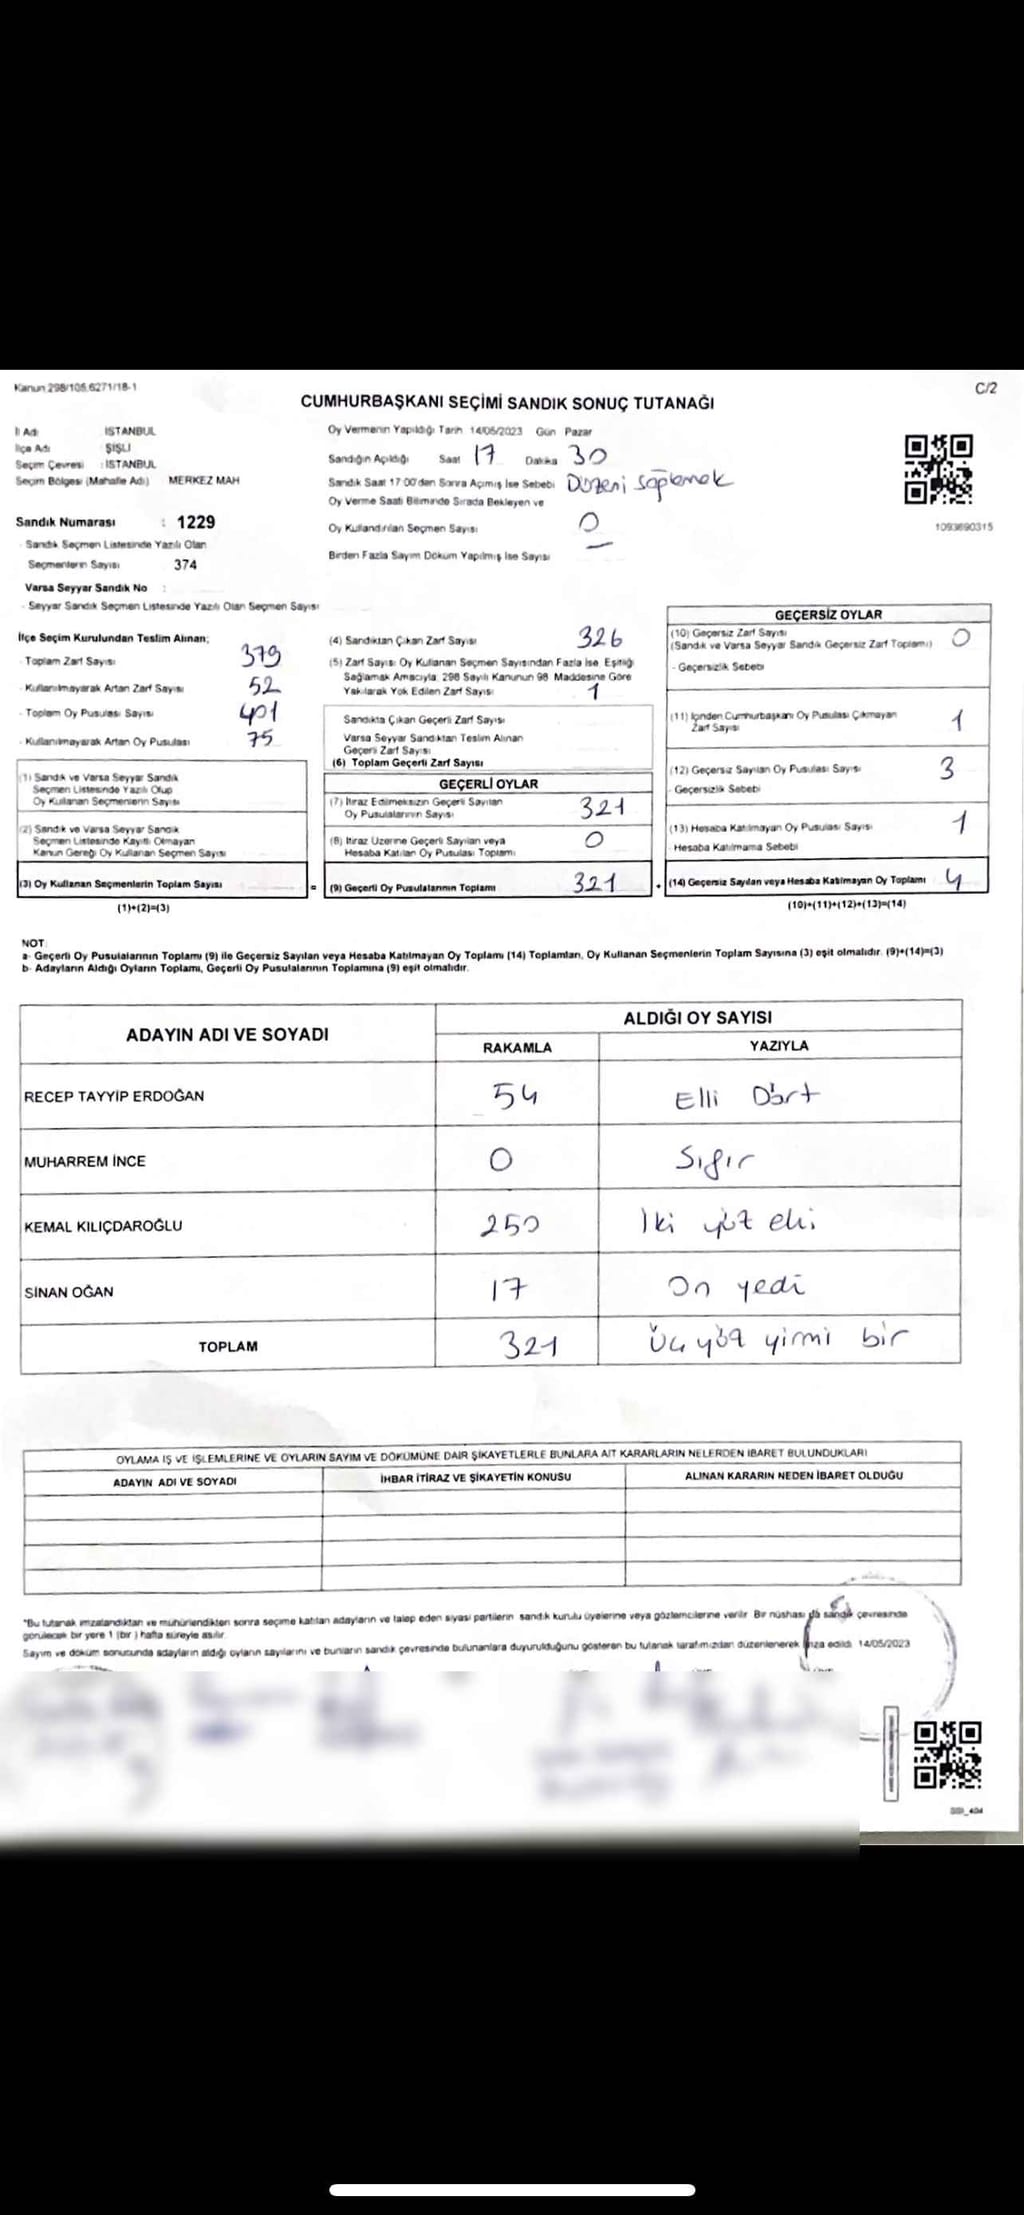 Kanun 298/105,6271/18-1
C/2
CUMHURBAŞKANI SEÇİMİ SANDIK SONUÇ TUTANAĞI
İl Adı İSTANBUL
İlçe Adı ŞİŞLİ
Seçim Çevresi : İSTANBUL
Seçim Bölgesi (Mahalle Adı) MERKEZ MAH
Sandık Numarası : 1229
- Sandık Seçmen Listesinde Yazılı Olan
Seçmenlerin Sayısı 374
Varsa Seyyar Sandık No :
- Seyyar Sandık Seçmen Listesinde Yazılı Olan Seçmen Sayısı
Oy Vermenin Yapıldığı Tarih 14/05/2023 Gün Pazar
Sandığın Açıldığı Saat 17 Dakika 30
Sandık Saat 17:00'den Sonra Açımış İse Sebebi Düzeni sağlamak
Oy Verme Saati Bitiminde Sırada Bekleyen ve
Oy Kullandırılan Seçmen Sayısı 0
Birden Fazla Sayım Döküm Yapılmış İse Sayısı -
1093690315
İlçe Seçim Kurulundan Teslim Alınan;
- Toplam Zarf Sayısı 379
- Kullanılmayarak Artan Zarf Sayısı 52
- Toplam Oy Pusulası Sayısı 401
- Kullanılmayarak Artan Oy Pusulası 75
(1) Sandık ve Varsa Seyyar Sandık
Seçmen Listesinde Yazılı Olup
Oy Kullanan Seçmenlerin Sayısı
(2) Sandık ve Varsa Seyyar Sandık
Seçmen Listesinde Kayıtlı Olmayan
Kanun Gereği Oy Kullanan Seçmen Sayısı
(3) Oy Kullanan Seçmenlerin Toplam Sayısı =
(1)+(2)=(3)
(4) Sandıktan Çıkan Zarf Sayısı 326
(5) Zarf Sayısı Oy Kullanan Seçmen Sayısından Fazla İse, Eşitliği
Sağlamak Amacıyla, 298 Sayılı Kanunun 98 Maddesine Göre
Yakılarak Yok Edilen Zarf Sayısı 1
Sandıkta Çıkan Geçerli Zarf Sayısı
Varsa Seyyar Sandıktan Teslim Alınan
Geçerli Zarf Sayısı
(6) Toplam Geçerli Zarf Sayısı
GEÇERLİ OYLAR
(7) İtiraz Edilmeksizin Geçerli Sayılan
Oy Pusulalarının Sayısı 321
(8) İtiraz Üzerine Geçerli Sayılan veya
Hesaba Katılan Oy Pusulası Toplamı 0
(9) Geçerli Oy Pusulalarının Toplamı 321 +
GEÇERSİZ OYLAR
(10) Geçersiz Zarf Sayısı 0
(Sandık ve Varsa Seyyar Sandık Geçersiz Zarf Toplamı)
- Geçersizlik Sebebi
(11) İçinden Cumhurbaşkanı Oy Pusulası Çıkmayan
Zarf Sayısı 1
(12) Geçersiz Sayılan Oy Pusulası Sayısı 3
- Geçersizlik Sebebi
(13) Hesaba Katılmayan Oy Pusulası Sayısı 1
- Hesaba Katılmama Sebebi
(14) Geçersiz Sayılan veya Hesaba Katılmayan Oy Toplamı 4
(10)+(11)+(12)+(13)=(14)
NOT:
a- Geçerli Oy Pusulalarının Toplamı (9) ile Geçersiz Sayılan veya Hesaba Katılmayan Oy Toplamı (14) Toplamları, Oy Kullanan Seçmenlerin Toplam Sayısına (3) eşit olmalıdır. (9)+(14)=(3)
b- Adayların Aldığı Oyların Toplamı, Geçerli Oy Pusulalarının Toplamına (9) eşit olmalıdır.
ADAYIN ADI VE SOYADI ALDIĞI OY SAYISI
RAKAMLA YAZIYLA
RECEP TAYYİP ERDOĞAN 54 Elli Dört
MUHARREM İNCE 0 Sıfır
KEMAL KILIÇDAROĞLU 250 İki yüz elli
SİNAN OĞAN 17 On yedi
TOPLAM 321 Üç yüz yirmi bir
OYLAMA İŞ VE İŞLEMLERİNE VE OYLARIN SAYIM VE DÖKÜMÜNE DAİR ŞİKAYETLERLE BUNLARA AİT KARARLARIN NELERDEN İBARET BULUNDUKLARI
ADAYIN ADI VE SOYADI İHBAR İTİRAZ VE ŞİKAYETİN KONUSU ALINAN KARARIN NEDEN İBARET OLDUĞU
"Bu tutanak imzalandıktan ve mühürlendikten sonra seçime katılan adayların ve talep eden siyasi partilerin sandık kurulu üyelerine veya gözlemcilerine verilir. Bir nüshası da sandık çevresinde
görülecek bir yere 1 (bir) hafta süreyle asılır.
Sayım ve döküm sonucunda adayların aldığı oyların sayılarını ve bunların sandık çevresinde bulunanlara duyurulduğunu gösteren bu tutanak tarafımızdan düzenlenerek imza edildi. 14/05/2023